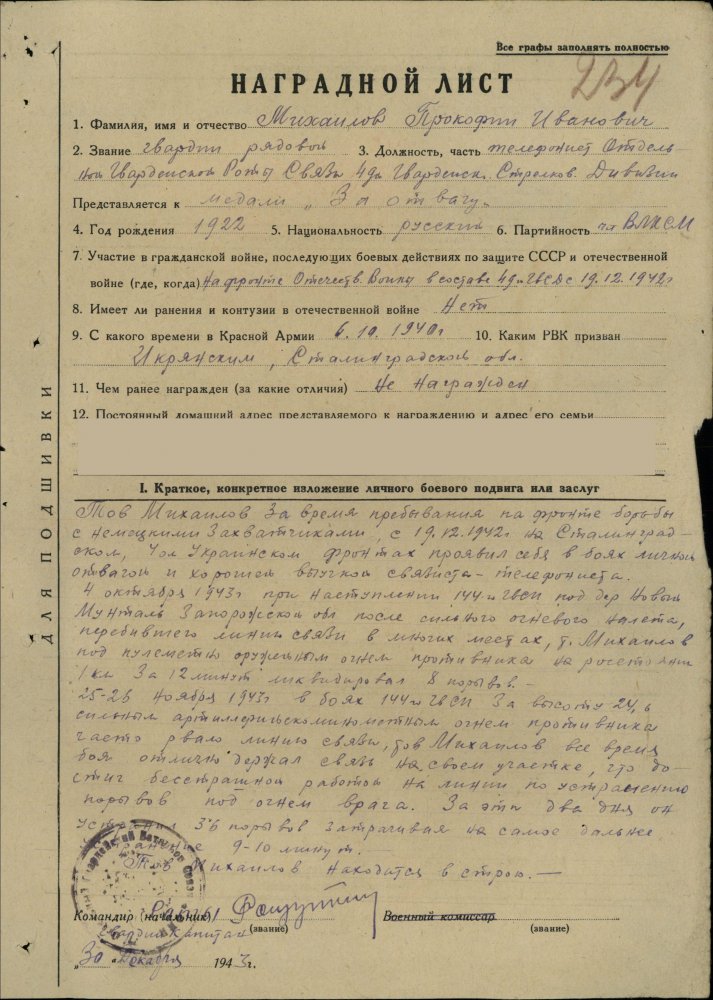 Все графы заполнять полностью
234
НАГРАДНОЙ ЛИСТ
1. Фамилия, имя и отчество Михаилов Прокофии Иванович
2. Звание гвардии рядовои 3. Должность, часть телефонист Отдель-
ной Гвардейской Роты Связи 49й Гвардейск. Стрелков. Дивизии
Представляется к медали „За отвагу"
4. Год рождения 1922 5. Национальность русский 6. Партийность чл ВЛКСМ
7. Участие в гражданской войне, последующих боевых действиях по защите СССР и отечественной
войне (где, когда) На фронте Отечеств. Войны в составе 49й ГвСД с 19.12.1942г
8. Имеет ли ранения и контузии в отечественной войне Нет
9. С какого времени в Красной Армии 6.10.1940г 10. Каким РВК призван
Икрянским, Сталинградской обл.
11. Чем ранее награжден (за какие отличия) Не Награжден
12. Постоянный домашний адрес представляемого к награждению и адрес его семьи
ДЛЯ ПОДШИВКИ
I. Краткое, конкретное изложение личного боевого подвига или заслуг
Тов Михаилов За время пребывания на фронте борьбы
с немецкими Захватчиками, с 19.12.1942г на Сталинград-
ском, 4ом Украинском фронтах проявил себя в боях личной
отвагой и хорошей выучкой связиста-телефониста.
4 октября 1943г при наступлении 144го ГвСП под дер Новый
Мунталь Запорожской обл после сильного огневого налета,
перебившего линию связи в многих местах, т. Михаилов
под пулеметно оружейным огнем противника на росстоянии
1 км За 12 минут ликвидировал 8 порывов.-
25-26 ноября 1943г в боях 144го ГвСП За высоту
сильным артиллерийскоминометным огнем противника
часто рвало линию связи, тов Михаилов все время
боя отлично держал связь на своем участке, что до-
стиг бесстрашной работой на линии по устранению
порывов под огнем врага. За эти два дня он
устранил 36 порывов затрачивая на самое дальнее
9-10 минут.
Тов Михаилов Находится в строю.—
Командир (начальник) Роты Военный комиссар
(звание) (звание)
гвардии Капитан
„30" декабря 1943г.